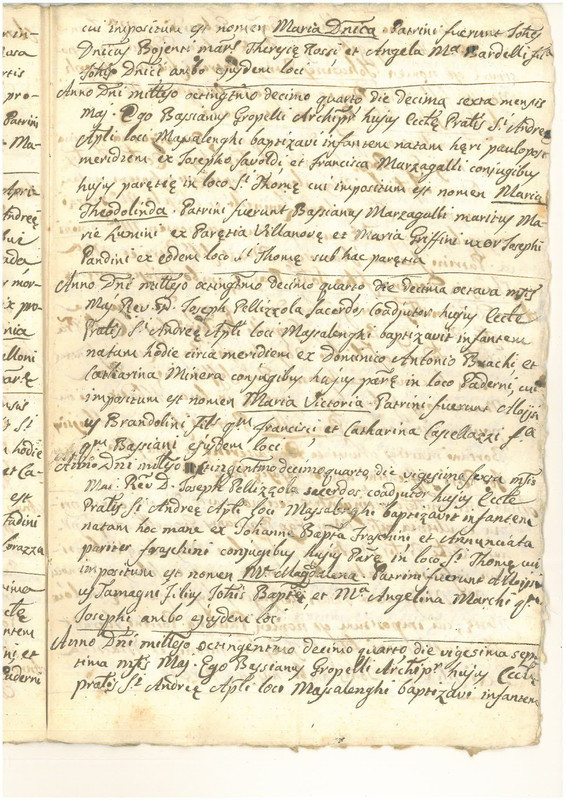 cui impositum est nomen Maria Dnica Patrini fuerunt Iohes
Dnicus Bojenti mars Theresie Rossi et Angela Ma Bardelli fila
Iohis Dnici ambo ejusdem loci
Anno Dni millmo octingtmo decimo quarto die decima sexta mensis
Maj. Ego Bassianus Gropelli Archipr hujus Eccle Pratis Sti Andree
Apli loci Massalenghi baptizavi infantem natam heri paulo post
meridiem ex Josepho Savoldi et Francisca Marzagalli conjugibus
hujus paretie in loco Sti Thome cui impositum est nomen Maria
Theodolinda. Patrini fuerunt Bassianus Marzagalli maritus Ma-
rie Lumini ex Paretia Villanove et Maria Griffini uxor Josephi
Pandini ex eodem loco Sti Thome sub hac paretia
Anno Dni millmo octingtmo decimo quarto die decima octava mtis
Maj Rev. D. Joseph Pellizzola Sacerdos coadjutor hujus Eccle
Pratis Sti Andree Apli loci Massalenghi baptizavit infantem
natam hodie circa meridiem ex Dominico Antonio Bnachi et
Catharina Minera conjugibus hujus pare in loco Paderni, cui
impositum est nomen Maria Victoria. Patrini fuerunt Aloysi-
us Brandolini fils qm Francisci et Catharina Casellazzi fa
qm Bassiani ejusdem loci
Anno Dni millmo octingentmo decimo quarto die vigesima sexta mtis
Maj. Rev. D. Joseph Pellizzola sacerdos, coadjutor hujus Eccle
Pratis Sti Andree Apli loci Massalenghi baptizavit infantem
natam hoc mane ex Johanne Bapta Fraschini et Annunciata
pariter Fraschini conjugibus hujus Pare in loco Sti Thome cui
impositum est nomen Ma Magdalena. Patrini fuerunt Aloysi-
us Tamagni filius Iohis Bapte, et Ma Angelina Marchi qm
Josephi ambo ejusdem loci
Anno Dni millmo octingentmo decimo quarto die vigesima sep-
tima mtis Maj. Ego Bassianus Gropelli Archipr hujus Eccle
pratis Sti Andree Apli loci Massalenghi baptizavi infantem